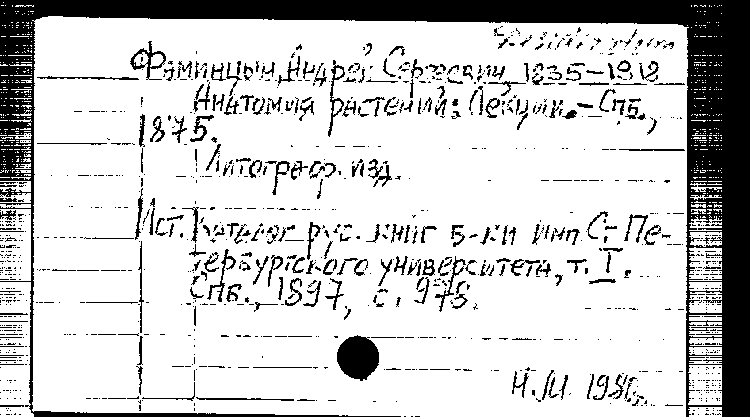 Desideratum
Фаминцын, Андрей Сергеевич, 1835–1918
Анатомия растений: Лекции.–Спб.,
1875.
Литограф. изд.
Ист. Каталог рус. книг б-ки имп С. Пе-
тербургского университета, т. I.
Спб., 1897, с. 978.
Н.М. 198